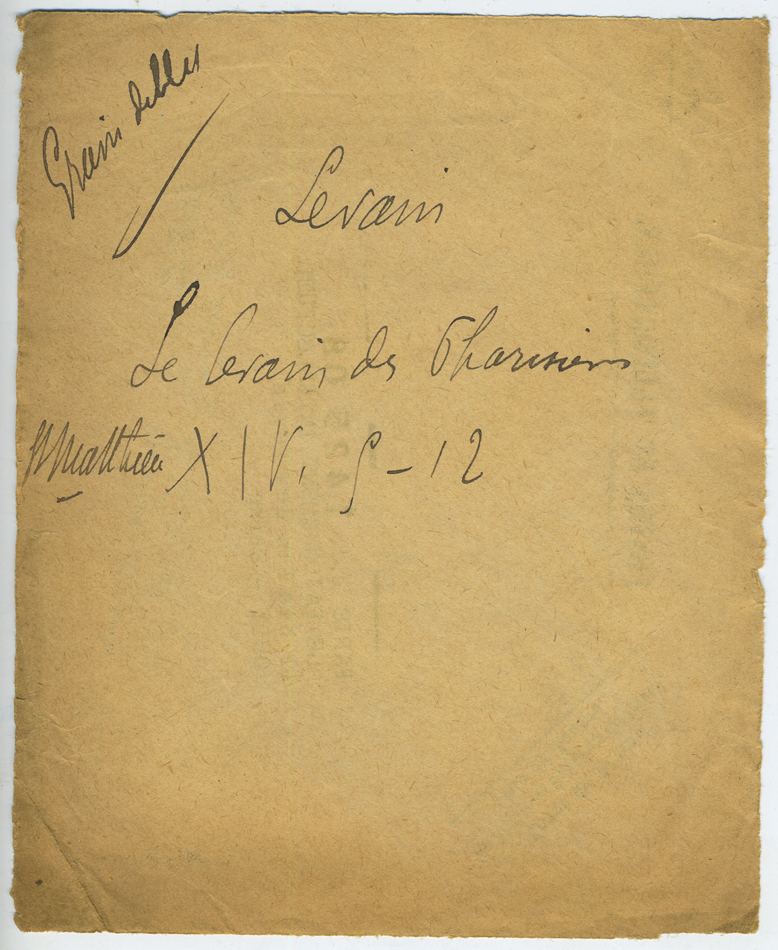 Grain de blé
Levain
Le levain des Pharisiens
St Matthieu XIV, 5-12